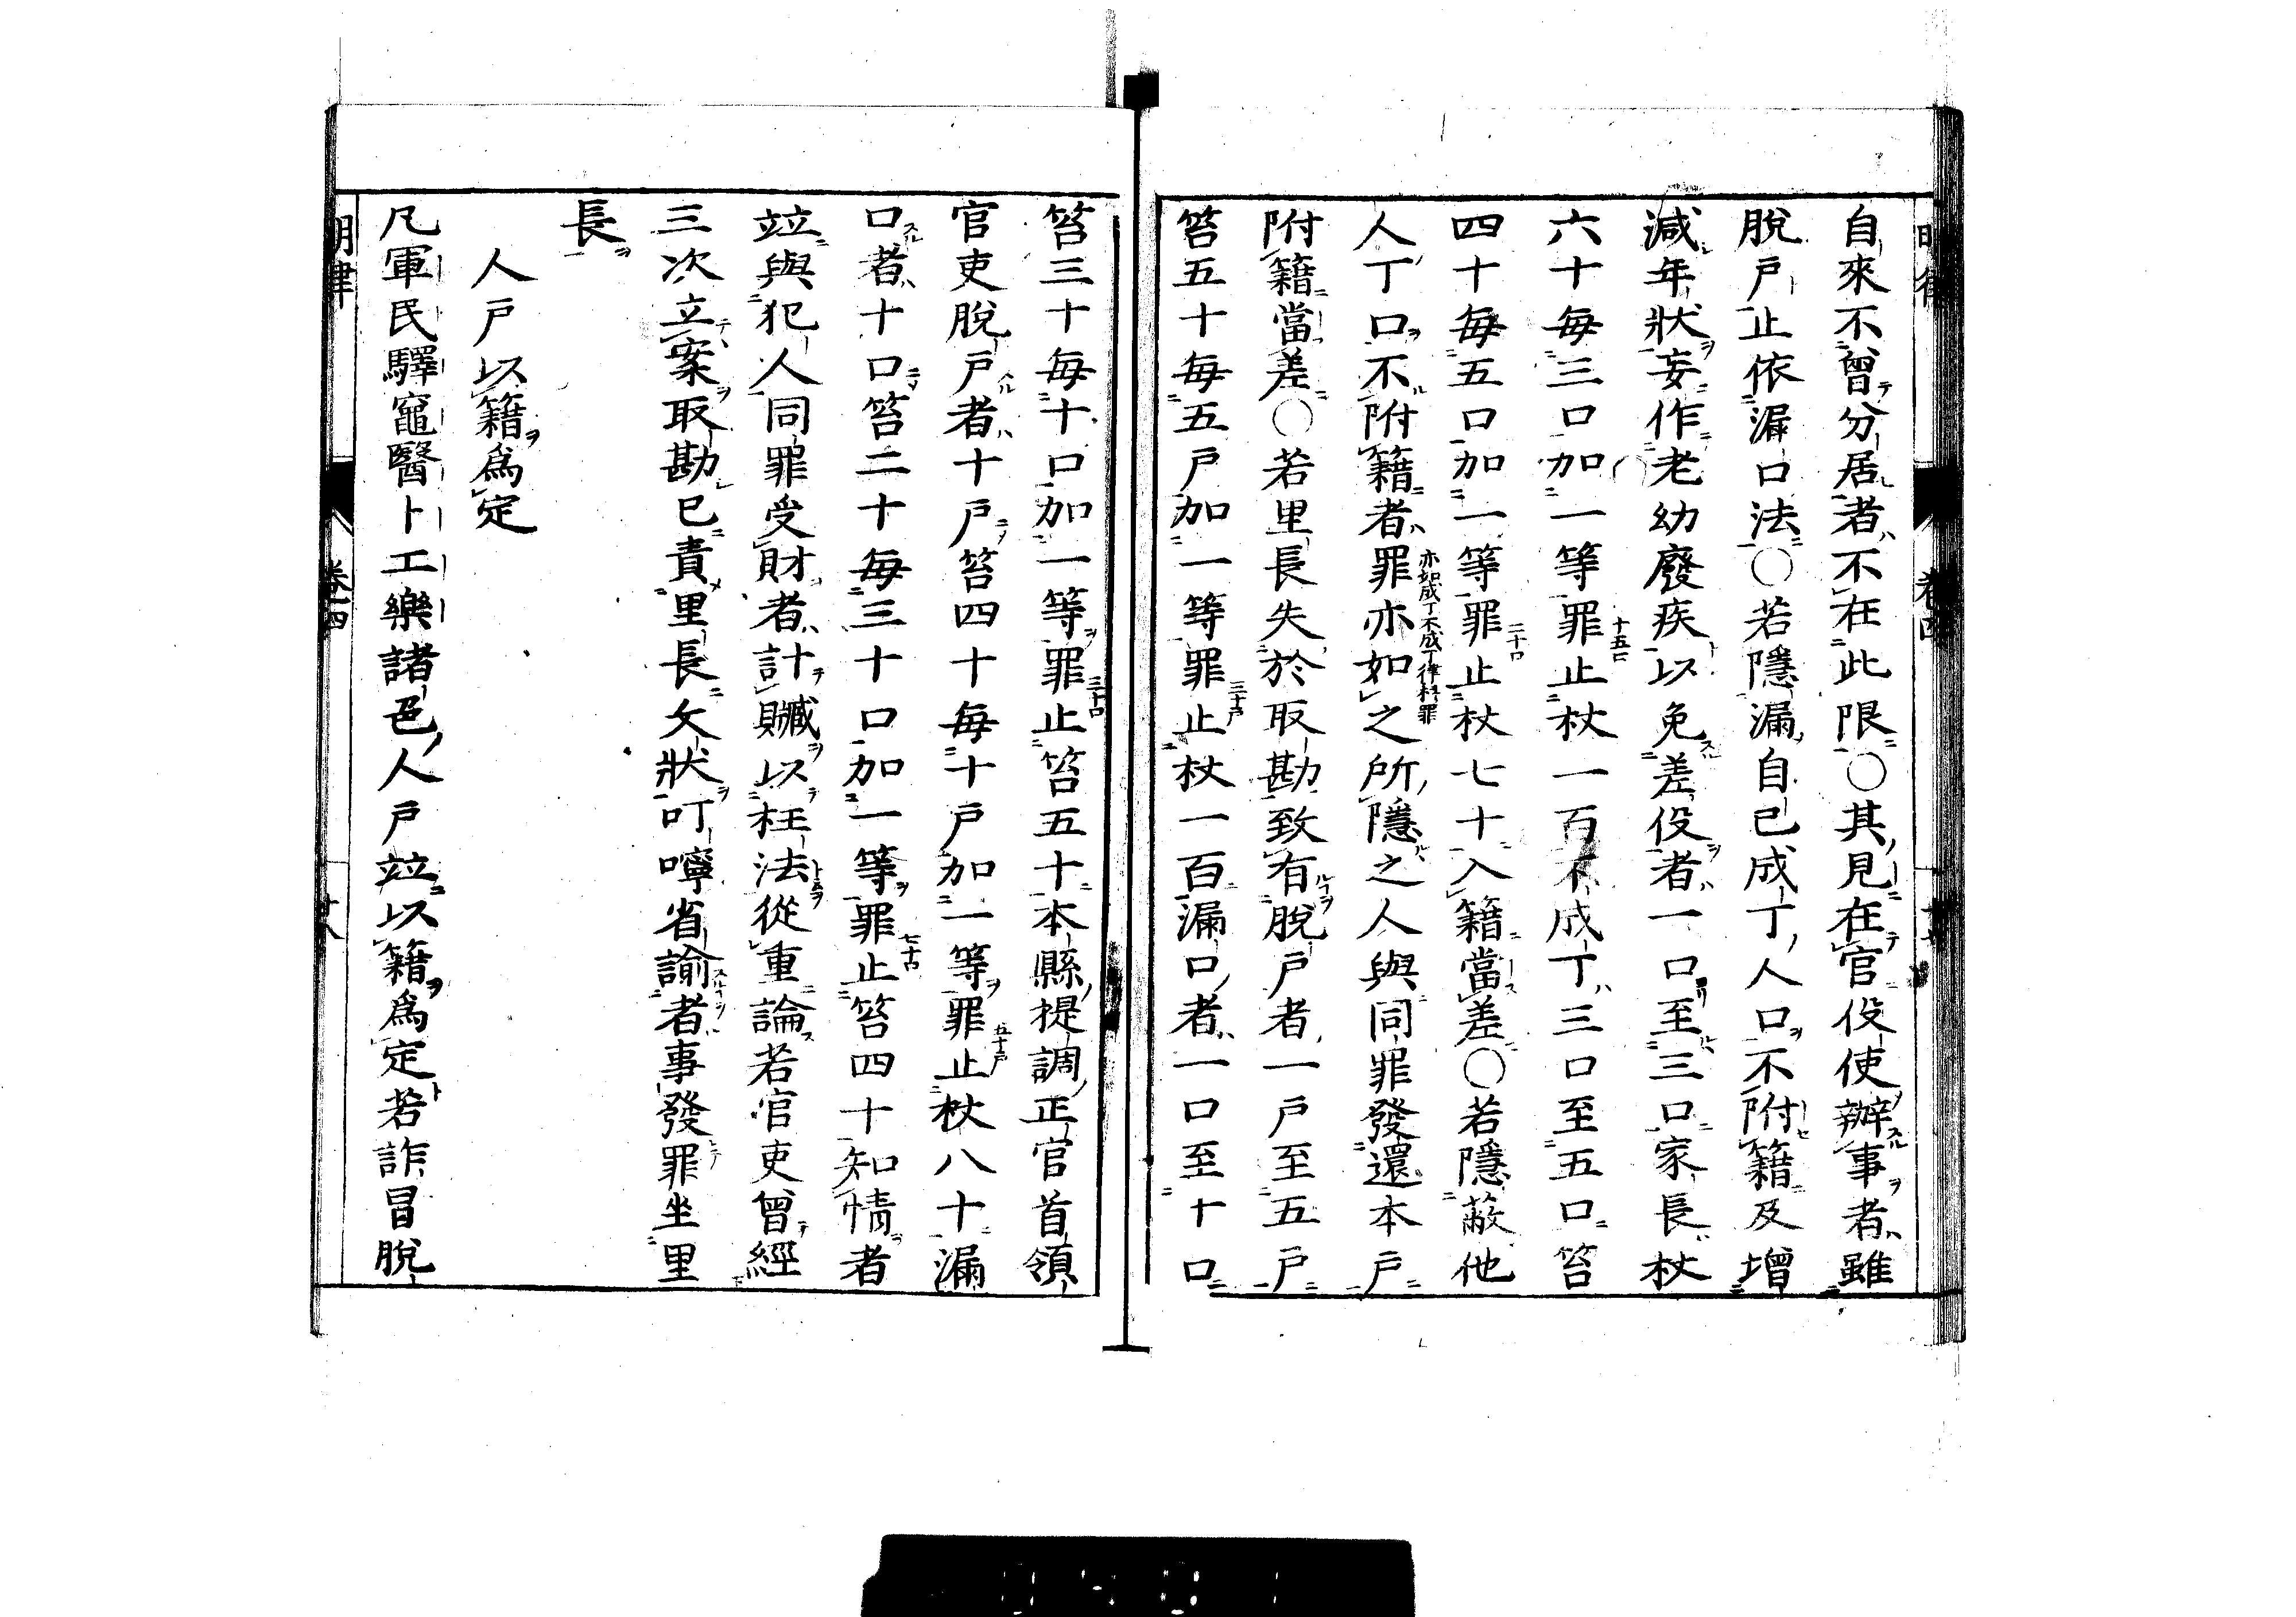 自來不曾分居者不在此限○其見在官役使辦事者雖
脫戶止依漏口法○若隱漏自己成丁人口不附籍及增
減年狀妄作老幼廢疾以免差役者一口至三口家長杖
六十每三口加一等罪止杖一百不成丁三口至五口笞
十五口
四十每五口加一等罪止杖七十入籍當差○若隱蔽他
二十口
人丁口不附籍者罪亦如之所隱之人與同罪發還本戶
亦如成丁不成丁律科罪
附籍當差○若里長失於取勘致有脫戶者一戶至五戶
笞五十每五戶加一等罪止杖一百漏口者一口至十口
三十戶
笞三十每十口加一等罪止笞五十本縣提調正官首領
三十口
官吏脫戶者十戶笞四十每十戶加一等罪止杖八十漏
五十戶
口者十口笞二十每三十口加一等罪止笞四十知情者
七十口
竝與犯人同罪受財者計贓以枉法從重論若官吏曾經
三次立案取勘已責里長文狀叮嚀省諭者事發罪坐里
長
人戶以籍爲定
凡軍民驛竈醫卜工樂諸色人戶竝以籍爲定若詐冒脫
明律
卷四